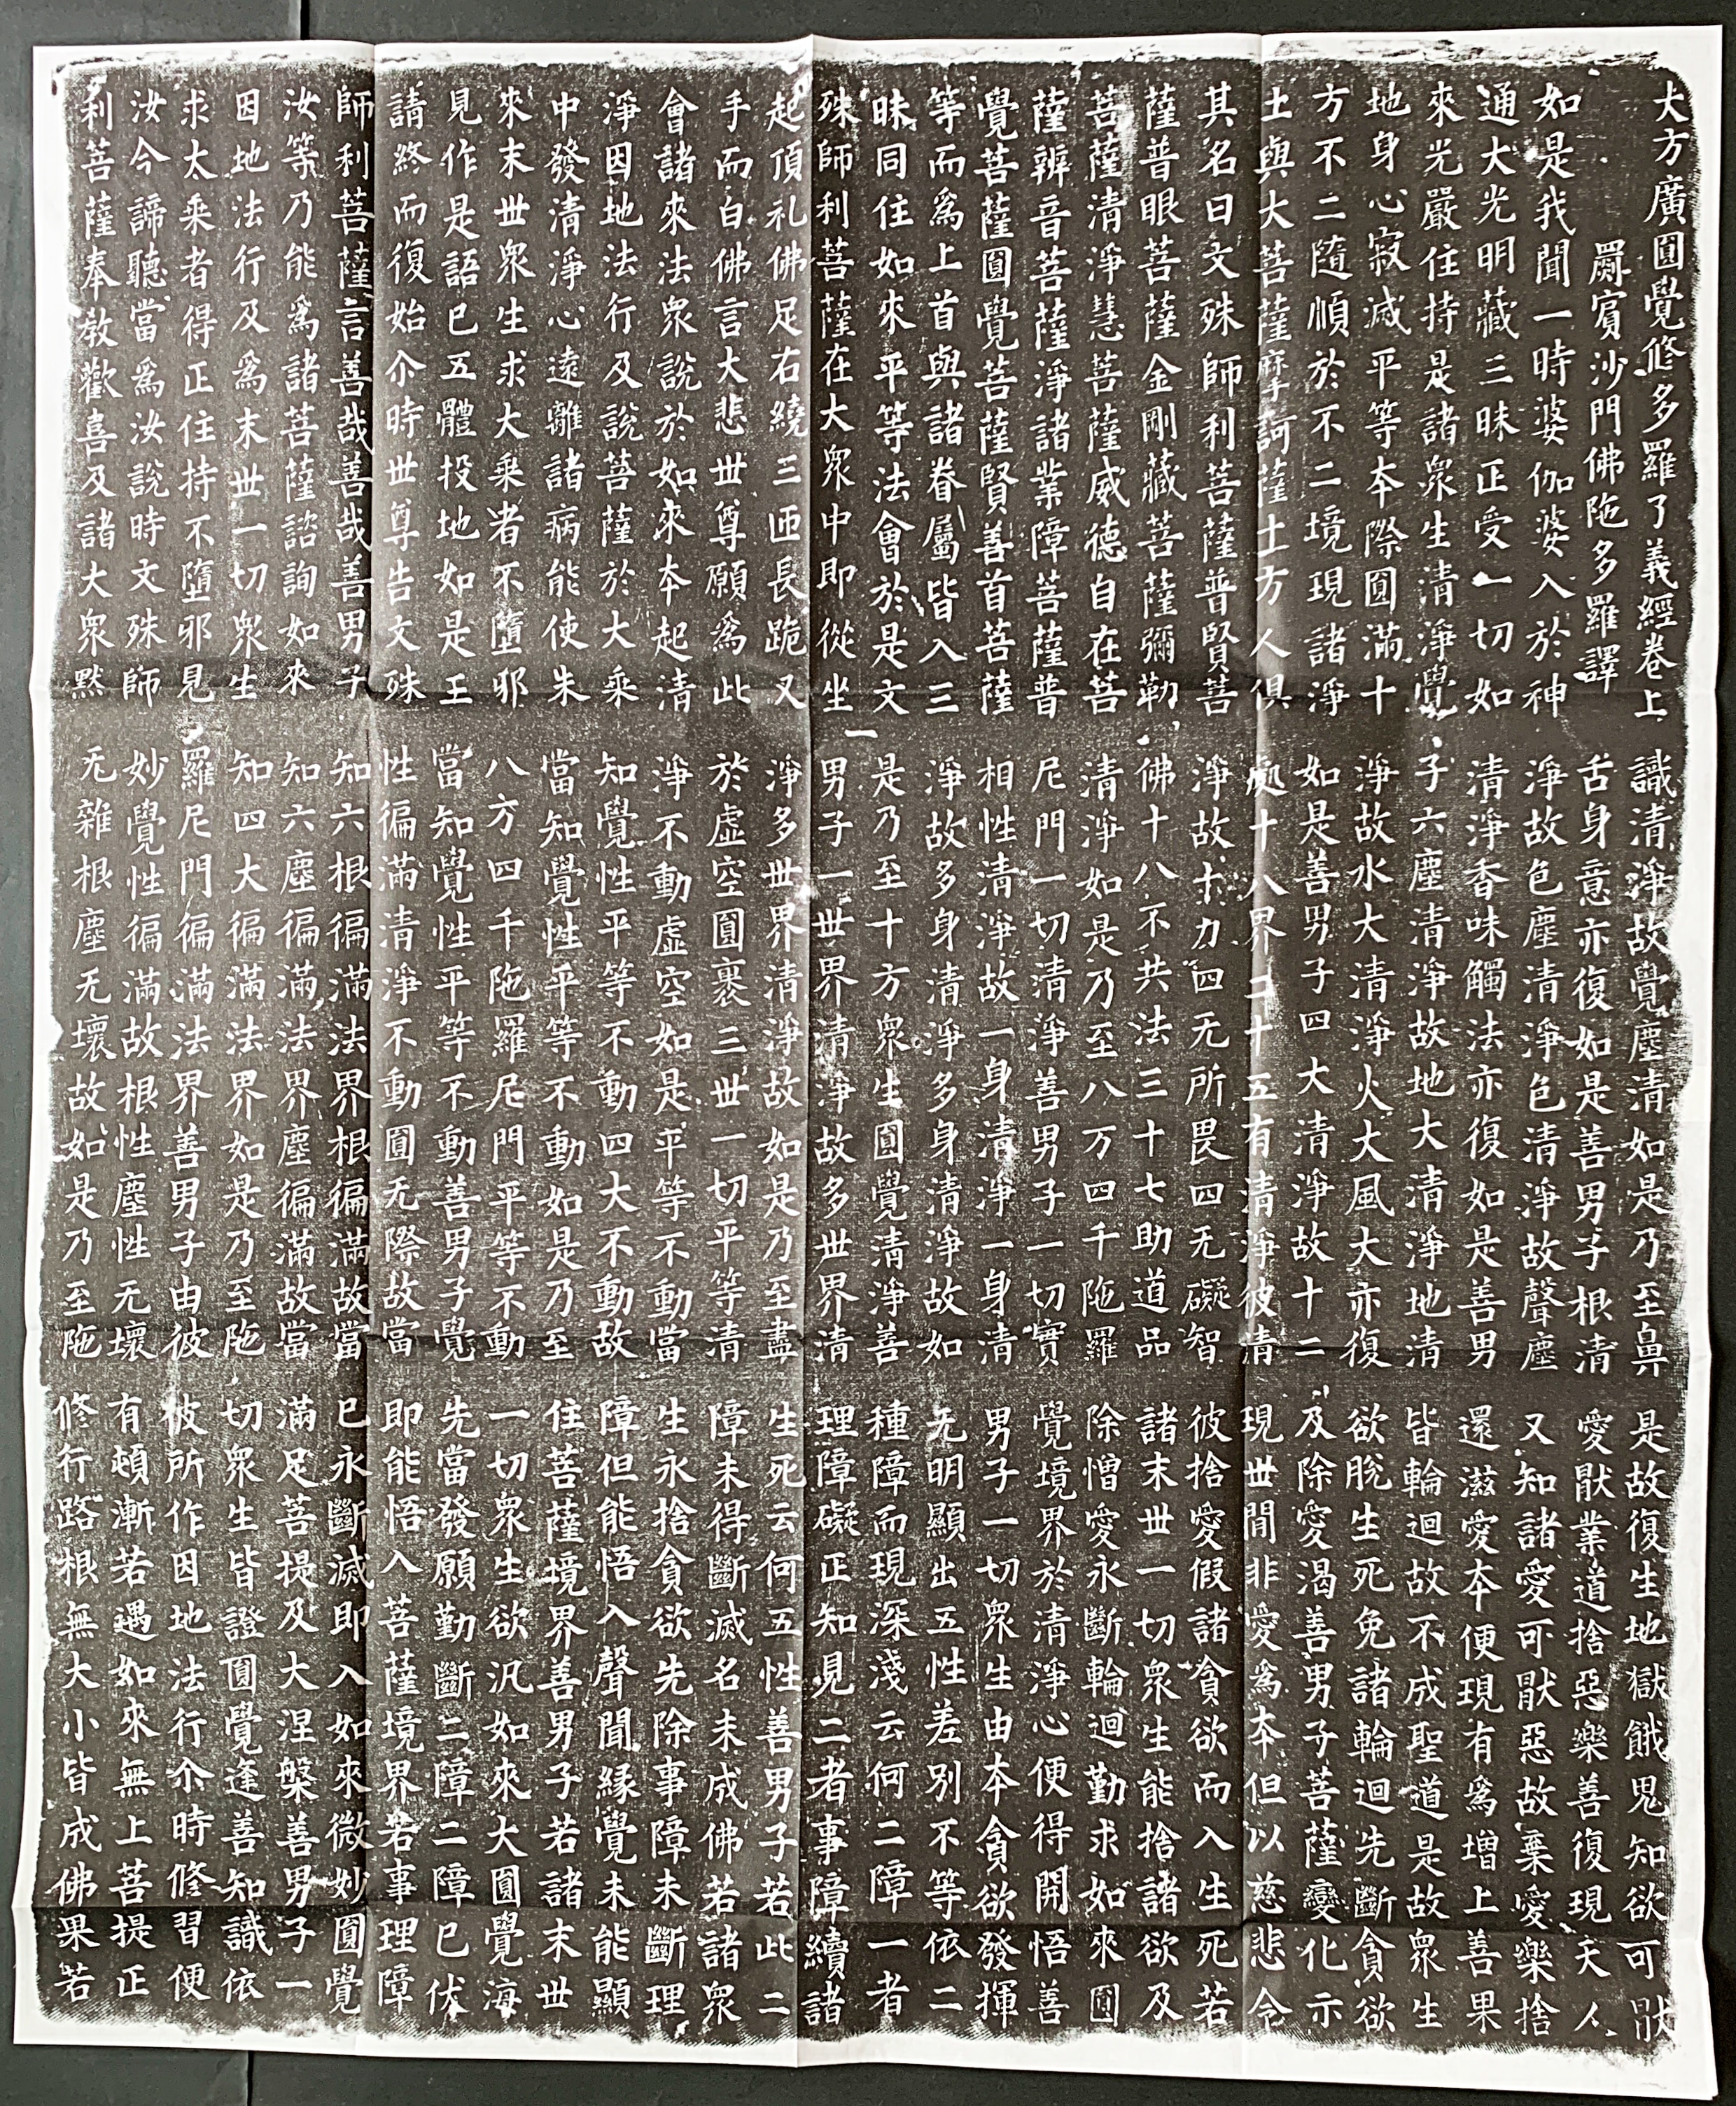 大方廣圓覺修多羅了義經卷上
罽賓沙門佛陁多羅譯
如是我聞一時婆伽婆入於神
通大光明藏三昧正受一切如
來光嚴住持是諸衆生清淨覺
地身心寂滅平等本際圓滿十
方不二隨順於不二境現諸淨
土與大菩薩摩訶薩十万人俱
其名曰文殊師利菩薩普賢菩
薩普眼菩薩金剛藏菩薩彌勒
菩薩清淨慧菩薩威德自在菩
薩辨音菩薩淨諸業障菩薩普
覺菩薩圓覺菩薩賢善首菩薩
等而爲上首與諸眷屬皆入三
昧同住如來平等法會於是文
殊師利菩薩在大衆中即從坐
起頂礼佛足右繞三匝長跪叉
手而白佛言大悲世尊願爲此
會諸來法衆說於如來本起清
淨因地法行及說菩薩於大乘
中發清淨心遠離諸病能使未
來末世衆生求大乘者不墮邪
見作是語已五體投地如是三
請終而復始尒時世尊告文殊
師利菩薩言善哉善哉善男子
汝等乃能爲諸菩薩諮詢如來
因地法行及爲末世一切衆生
求大乘者得正住持不墮邪見
汝今諦聽當爲汝說時文殊師
利菩薩奉教歡喜及諸大衆默
識清淨故覺塵清如是乃至鼻
舌身意亦復如是善男子根清
淨故色塵清淨色清淨故聲塵
清淨香味觸法亦復如是善男
子六塵清淨故地大清淨地清
淨故水大清淨火大風大亦復
如是善男子四大清淨故十二
處十八界二十五有清淨彼清
淨故十力四无所畏四无礙智
佛十八不共法三十七助道品
清淨如是乃至八万四千陁羅
尼門一切清淨善男子一切實
相性清淨故一身清淨一身清
淨故多身清淨多身清淨故如
是乃至十方衆生圓覺清淨善
男子一世界清淨故多世界清
淨多世界清淨故如是乃至盡
於虛空圓裹三世一切平等清
淨不動虛空如是平等不動當
知覺性平等不動四大不動故
當知覺性平等不動如是乃至
八方四千陁羅尼門平等不動
當知覺性平等不動善男子覺
性徧滿清淨不動圓无際故當
知六根徧滿法界根徧滿故當
知六塵徧滿法界塵徧滿故當
知四大徧滿法界如是乃至陁
羅尼門徧滿法界善男子由彼
妙覺性徧滿故根性塵性无壞
无雜根塵无壞故如是乃至陁
是故復生地獄餓鬼知欲可猒
愛猒業道捨惡樂善復現天人
又知諸愛可猒惡故棄愛樂捨
還滋愛本便現有爲增上善果
皆輪迴故不成聖道是故衆生
欲脫生死免諸輪迴先斷貪欲
及除愛渴善男子菩薩變化示
現世間非愛爲本但以慈悲令
彼捨愛假諸貪欲而入生死若
諸末世一切衆生能捨諸欲及
除憎愛永斷輪迴勤求如來圓
覺境界於清淨心便得開悟善
男子一切衆生由本貪欲發揮
无明顯出五性差別不等依二
種障而現深淺云何二障一者
理障礙正知見二者事障續諸
生死云何五性善男子若此二
障未得斷滅名未成佛若諸衆
生永捨貪欲先除事障未斷理
障但能悟入聲聞緣覺未能顯
住菩薩境界善男子若諸末世
一切衆生欲汎如來大圓覺海
先當發願勤斷二障二障已伏
即能悟入菩薩境界若事理障
已永斷滅即入如來微妙圓覺
滿足菩提及大涅槃善男子一
切衆生皆證圓覺逢善知識依
彼所作因地法行尒時修習便
有頓漸若遇如來無上菩提正
修行路根無大小皆成佛果若